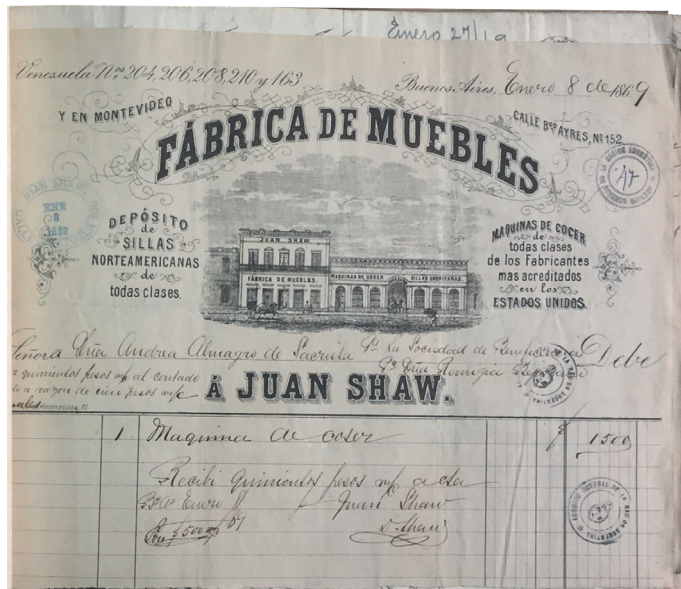 Enero 27/19
Venezuela Nos. 204, 206, 208, 210 y 163
Buenos Aires, Enero 8 de 1869
Y EN MONTEVIDEO
CALLE Bos AYRES, No 152
FÁBRICA DE MUEBLES
JUAN SHAW
ENE
8
1869
17
DEPÓSITO
de
SILLAS
NORTEAMERICANAS
de
todas clases.
JUAN SHAW.
FÁBRICA DE MUEBLES.
MAQUINAS DE COSER
SILLAS AMERICANAS
MAQUINAS DE COCER
de
todas clases
de los Fabricantes
mas acreditados
en los
ESTADOS UNIDOS.
Señora Dña Andrea Almagro de Sacrista Pr La Sociedad de
Debe
quinientos pesos m/c al contado
Pr Dña Remigia
a razon de cien pesos m/c
Á JUAN SHAW.
1 Maquina de coser $ 1500
Recibi quinientos pesos m/c a cta
Enero 8/69
Juan Shaw
$500 m/c
D. Shaw
ARCHIVO GENERAL DE LA NACION ARGENTINA